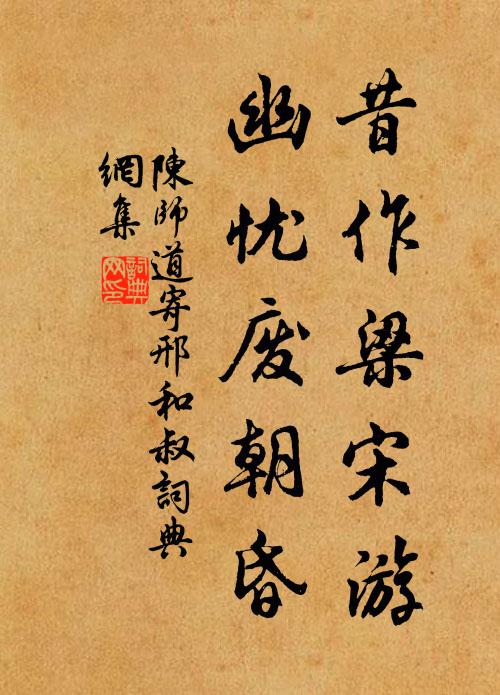 昔作梁宋游
幽忧废朝昏
陳師道寄邢和叔詞典
網集
詞典網印